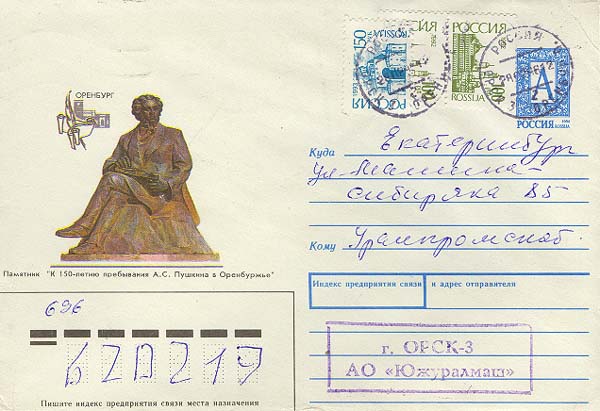 ОРЕНБУРГ
Памятник "К 150-летию пребывания А.С. Пушкина в Оренбуржье"
150
РОССИЯ
РОССИЯ
100
ROSSIJA
РОССИЯ
А
РОССИЯ
ROSSIJA
Куда Екатеринбург
ул. Мамина-
сибиряка 85
Кому Уралпромснаб
Индекс предприятия связи и адрес отправителя
г. ОРСК-3
АО «Южуралмаш»
696
620219
Пишите индекс предприятия связи места назначения